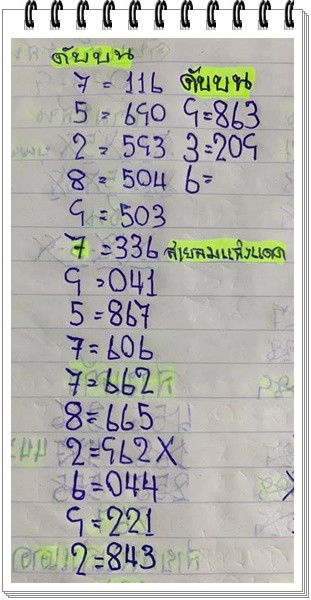 ดับบน
7 = 116
5 = 690
2 = 593
8 = 504
9 = 503
7 = 336 สายลมแสงแดด
9 = 041
5 = 867
7 = 606
7 = 662
8 = 665
2 = 962 X
6 = 044
9 = 221
2 = 843
ดับบน
9 = 863
3 = 209
6 =